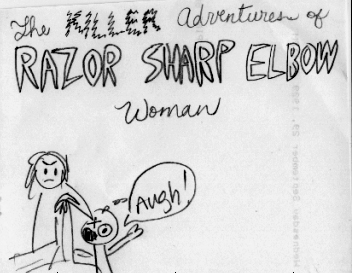 The KILLER Adventures of
RAZOR SHARP ELBOW
Woman
Augh!